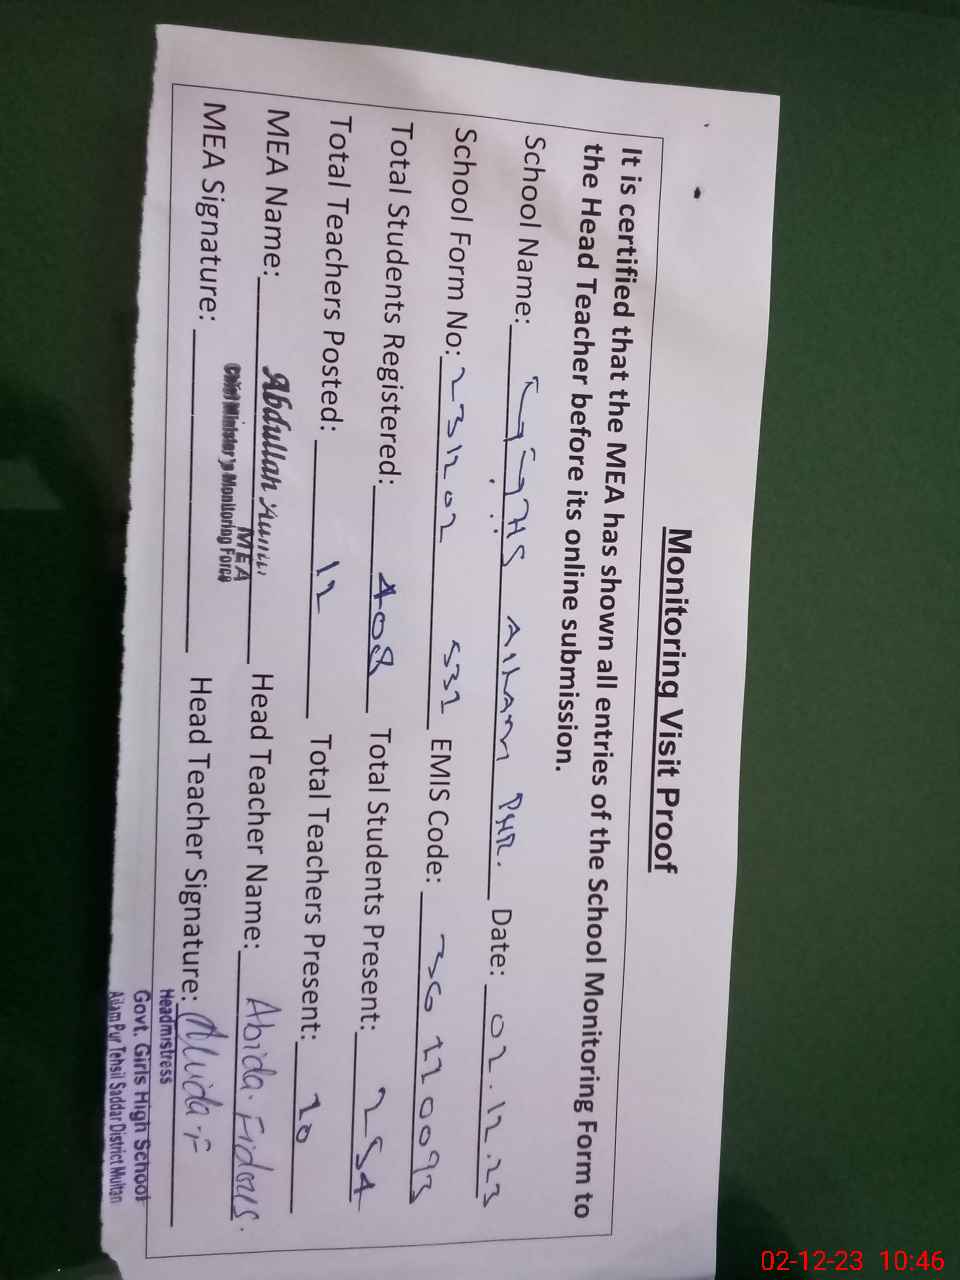 Monitoring Visit Proof
It is certified that the MEA has shown all entries of the School Monitoring Form to
the Head Teacher before its online submission.
School Name: HS Alham PUR. Date: 02.12.23
School Form No: 231202 531 EMIS Code:
Total Students Registered: 408 Total Students Present: 254
Total Teachers Posted: 12 Total Teachers Present: 10
MEA Name: Abdullah Head Teacher Name: Abida. Firdous.
MEA
Chief Minister's Monitoring Force
MEA Signature: Head Teacher Signature: Abida.F
Headmistress
Govt. Girls High School
Pur Tehsil Saddar District Multan
02-12-23 10:46